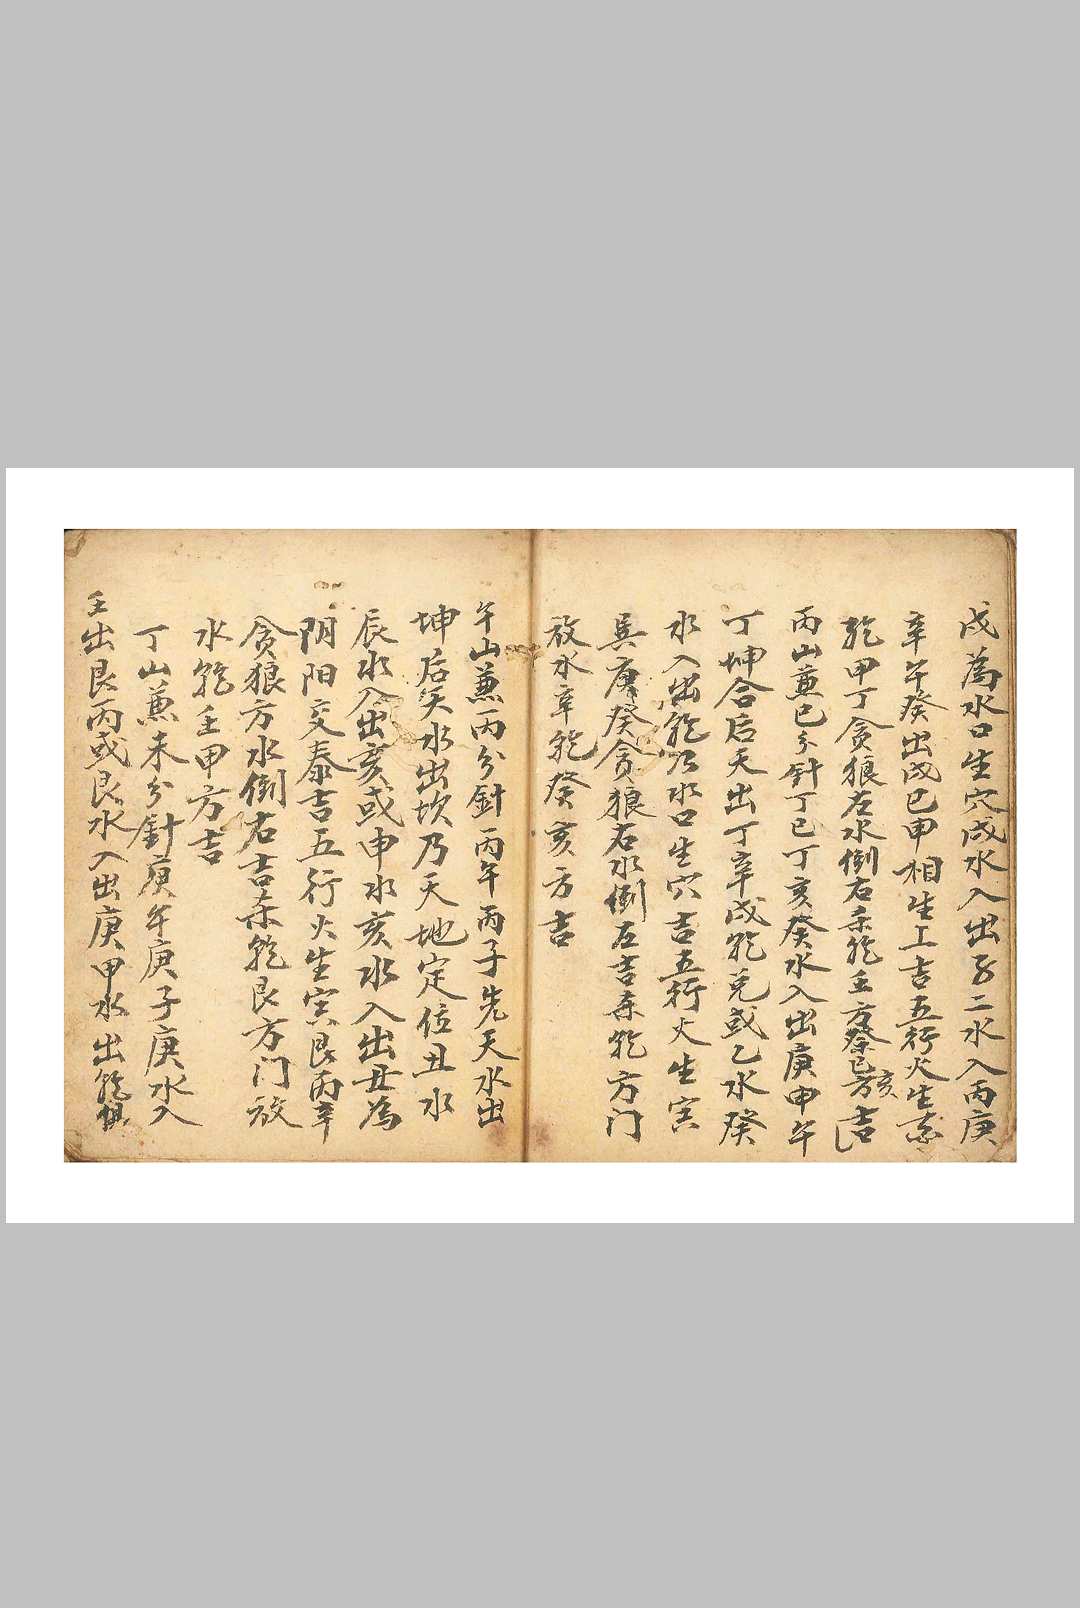 戌為水口生穴戌水入出子二水入丙庚
辛午癸出戌巳甲相生上吉五行火生
乾甲丁貪狼左水倒右乘乾壬方癸巳方亥吉
丙山兼巳分針丁巳丁亥癸水入出庚甲午
丁坤合后天出丁辛戌乾兌或乙水癸
水入出乾為水口生穴吉五行火生寅
巽庚癸貪狼右水倒左吉乘乾方门
放水辛乾癸亥方吉
午山兼丙分針丙午丙子先天水出
坤后天水出坎乃天地定位丑水
辰水入出亥或申水亥水入出丑為
阴阳交泰吉五行火生寅艮丙辛
貪狼方水倒右吉乘乾艮方门放
水乾壬甲方吉
丁山兼未分針庚午庚子庚水入
壬出艮丙或艮水入出庚甲水出乾